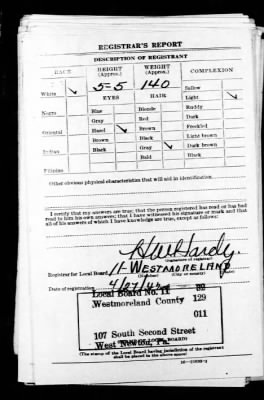 REGISTRAR'S REPORT
DESCRIPTION OF REGISTRANT
RACE
HEIGHT (Approx.)
WEIGHT (Approx.)
COMPLEXION
White ✓
5-5
140
Sallow
EYES
HAIR
Light ✓
Negro
Blue
Blonde
Ruddy
Gray
Red
Dark
Oriental
Hazel ✓
Brown
Freckled
Brown
Black
Light brown
Indian
Black
Gray ✓
Dark brown
Bald
Black
Filipino
Other obvious physical characteristics that will aid in identification
I certify that my answers are true; that the person registered has read or has had
read to him his own answers; that I have witnessed his signature or mark and that
all of his answers of which I have knowledge are true, except as follows:
Hardy
(Signature of registrar)
Registrar for Local Board
11 - WESTMORELAND
(Number)
(City or county)
(State)
Date of registration
4/27/42
Local Board No. 11 89
Westmoreland County 129
011
107 South Second Street
West Newton, Pa.
(The stamp of the Local Board having jurisdiction of the registrant
shall be placed in the above space)